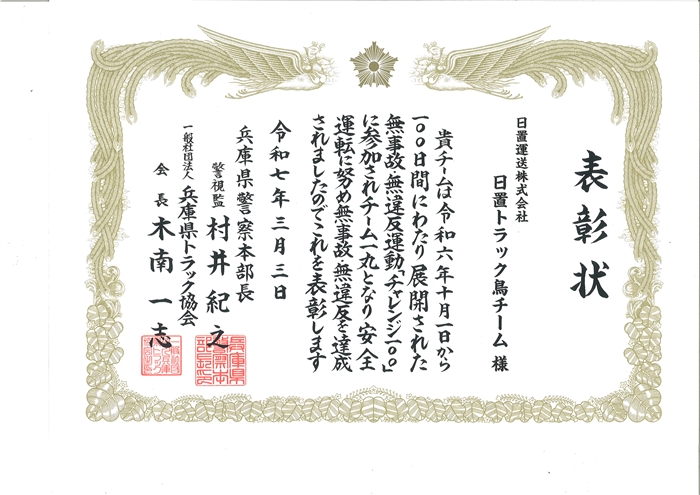 表彰状
日置運送株式会社
日置トラック鳥チーム 様
貴チームは令和六年十月一日から
一〇〇日間にわたり展開された
無事故・無違反運動「チャレンジ一〇〇」
に参加されチーム一丸となり安全
運転に努め無事故・無違反を達成
されましたのでこれを表彰します
令和七年三月三日
兵庫県警察本部長
警視監 村井紀之
一般社団法人 兵庫県トラック協会
会長 木南一志
兵庫県
警察本
部長印